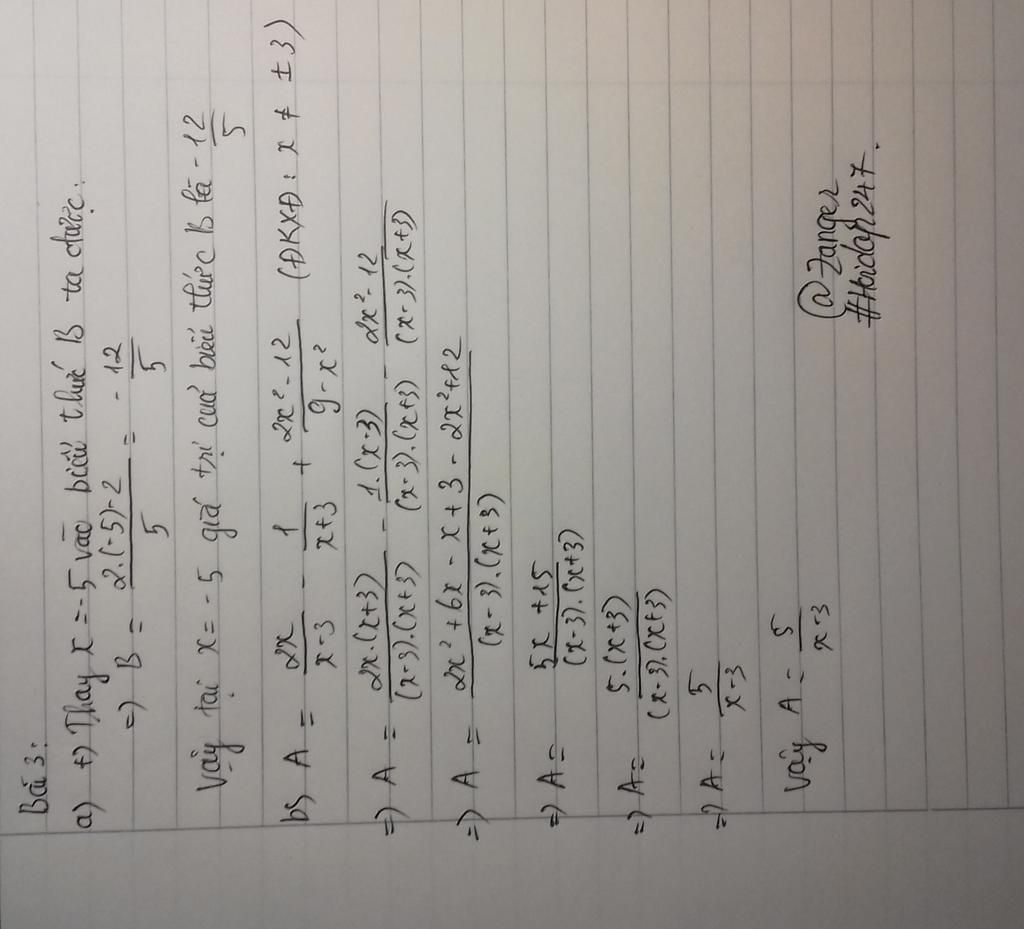 Bài 3:
a) +) Thay x = -5 vào biểu thức B ta được:
=) B = \frac{2.(-5)-2}{5} = - \frac{12}{5}
Vậy tại x = -5 giá trị của biểu thức B là - \frac{12}{5}
b) A = \frac{2x}{x-3} - \frac{1}{x+3} + \frac{2x²-12}{9-x²} (ĐKXĐ: x ≠ ± 3)
=) A = \frac{2x.(x+3)}{(x-3).(x+3)} - \frac{1.(x-3)}{(x-3).(x+3)} - \frac{2x²-12}{(x-3).(x+3)}
=) A = \frac{2x²+6x-x+3-2x²+12}{(x-3).(x+3)}
=) A = \frac{5x+15}{(x-3).(x+3)}
=) A = \frac{5.(x+3)}{(x-3).(x+3)}
=) A = \frac{5}{x-3}
Vậy A = \frac{5}{x-3}
@zanger
#Hoidap247.